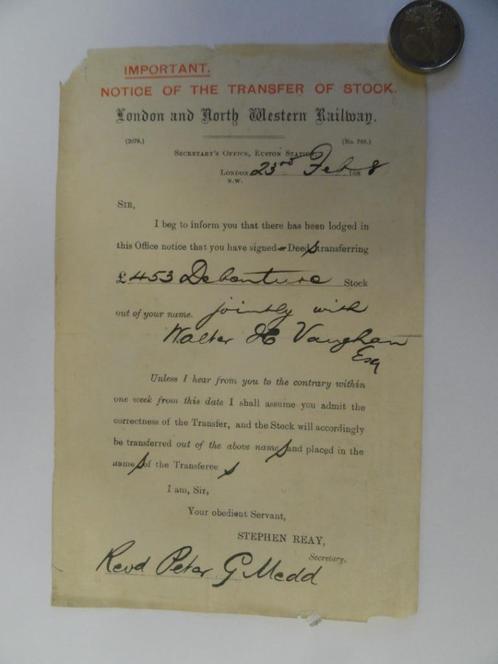 IMPORTANT.
NOTICE OF THE TRANSFER OF STOCK.
London and North Western Railway.
(2078.) (No. 788.)
SECRETARY'S OFFICE, EUSTON STATION
LONDON 23rd Feb 1888
N.W.
SIR,
I beg to inform you that there has been lodged
in this Office notice that you have signed Deeds transferring
£453 Debenture Stock
out of your name. jointly with
Walter H Vaughan
Esq
Unless I hear from you to the contrary within
one week from this date I shall assume you admit the
correctness of the Transfer, and the Stock will accordingly
be transferred out of the above names and placed in the
names of the Transferees
I am, Sir,
Your obedient Servant,
STEPHEN REAY,
Secretary.
Revd Peter G Medd